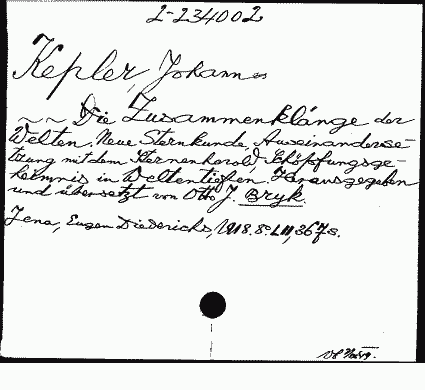 2-234002
Kepler, Johannes
~ ~ Die Zusammenklänge der
Welten. Neue Sternkunde, Auseinanderse-
tzung mit dem Sternenherold, Schöpfungsge-
heimnis in Weltentiefen. Herausgegeben
und übersetzt von Otto J. Bryk.
Jena, Eugen Diederichs, 1918. 8°. LII, 367 s.